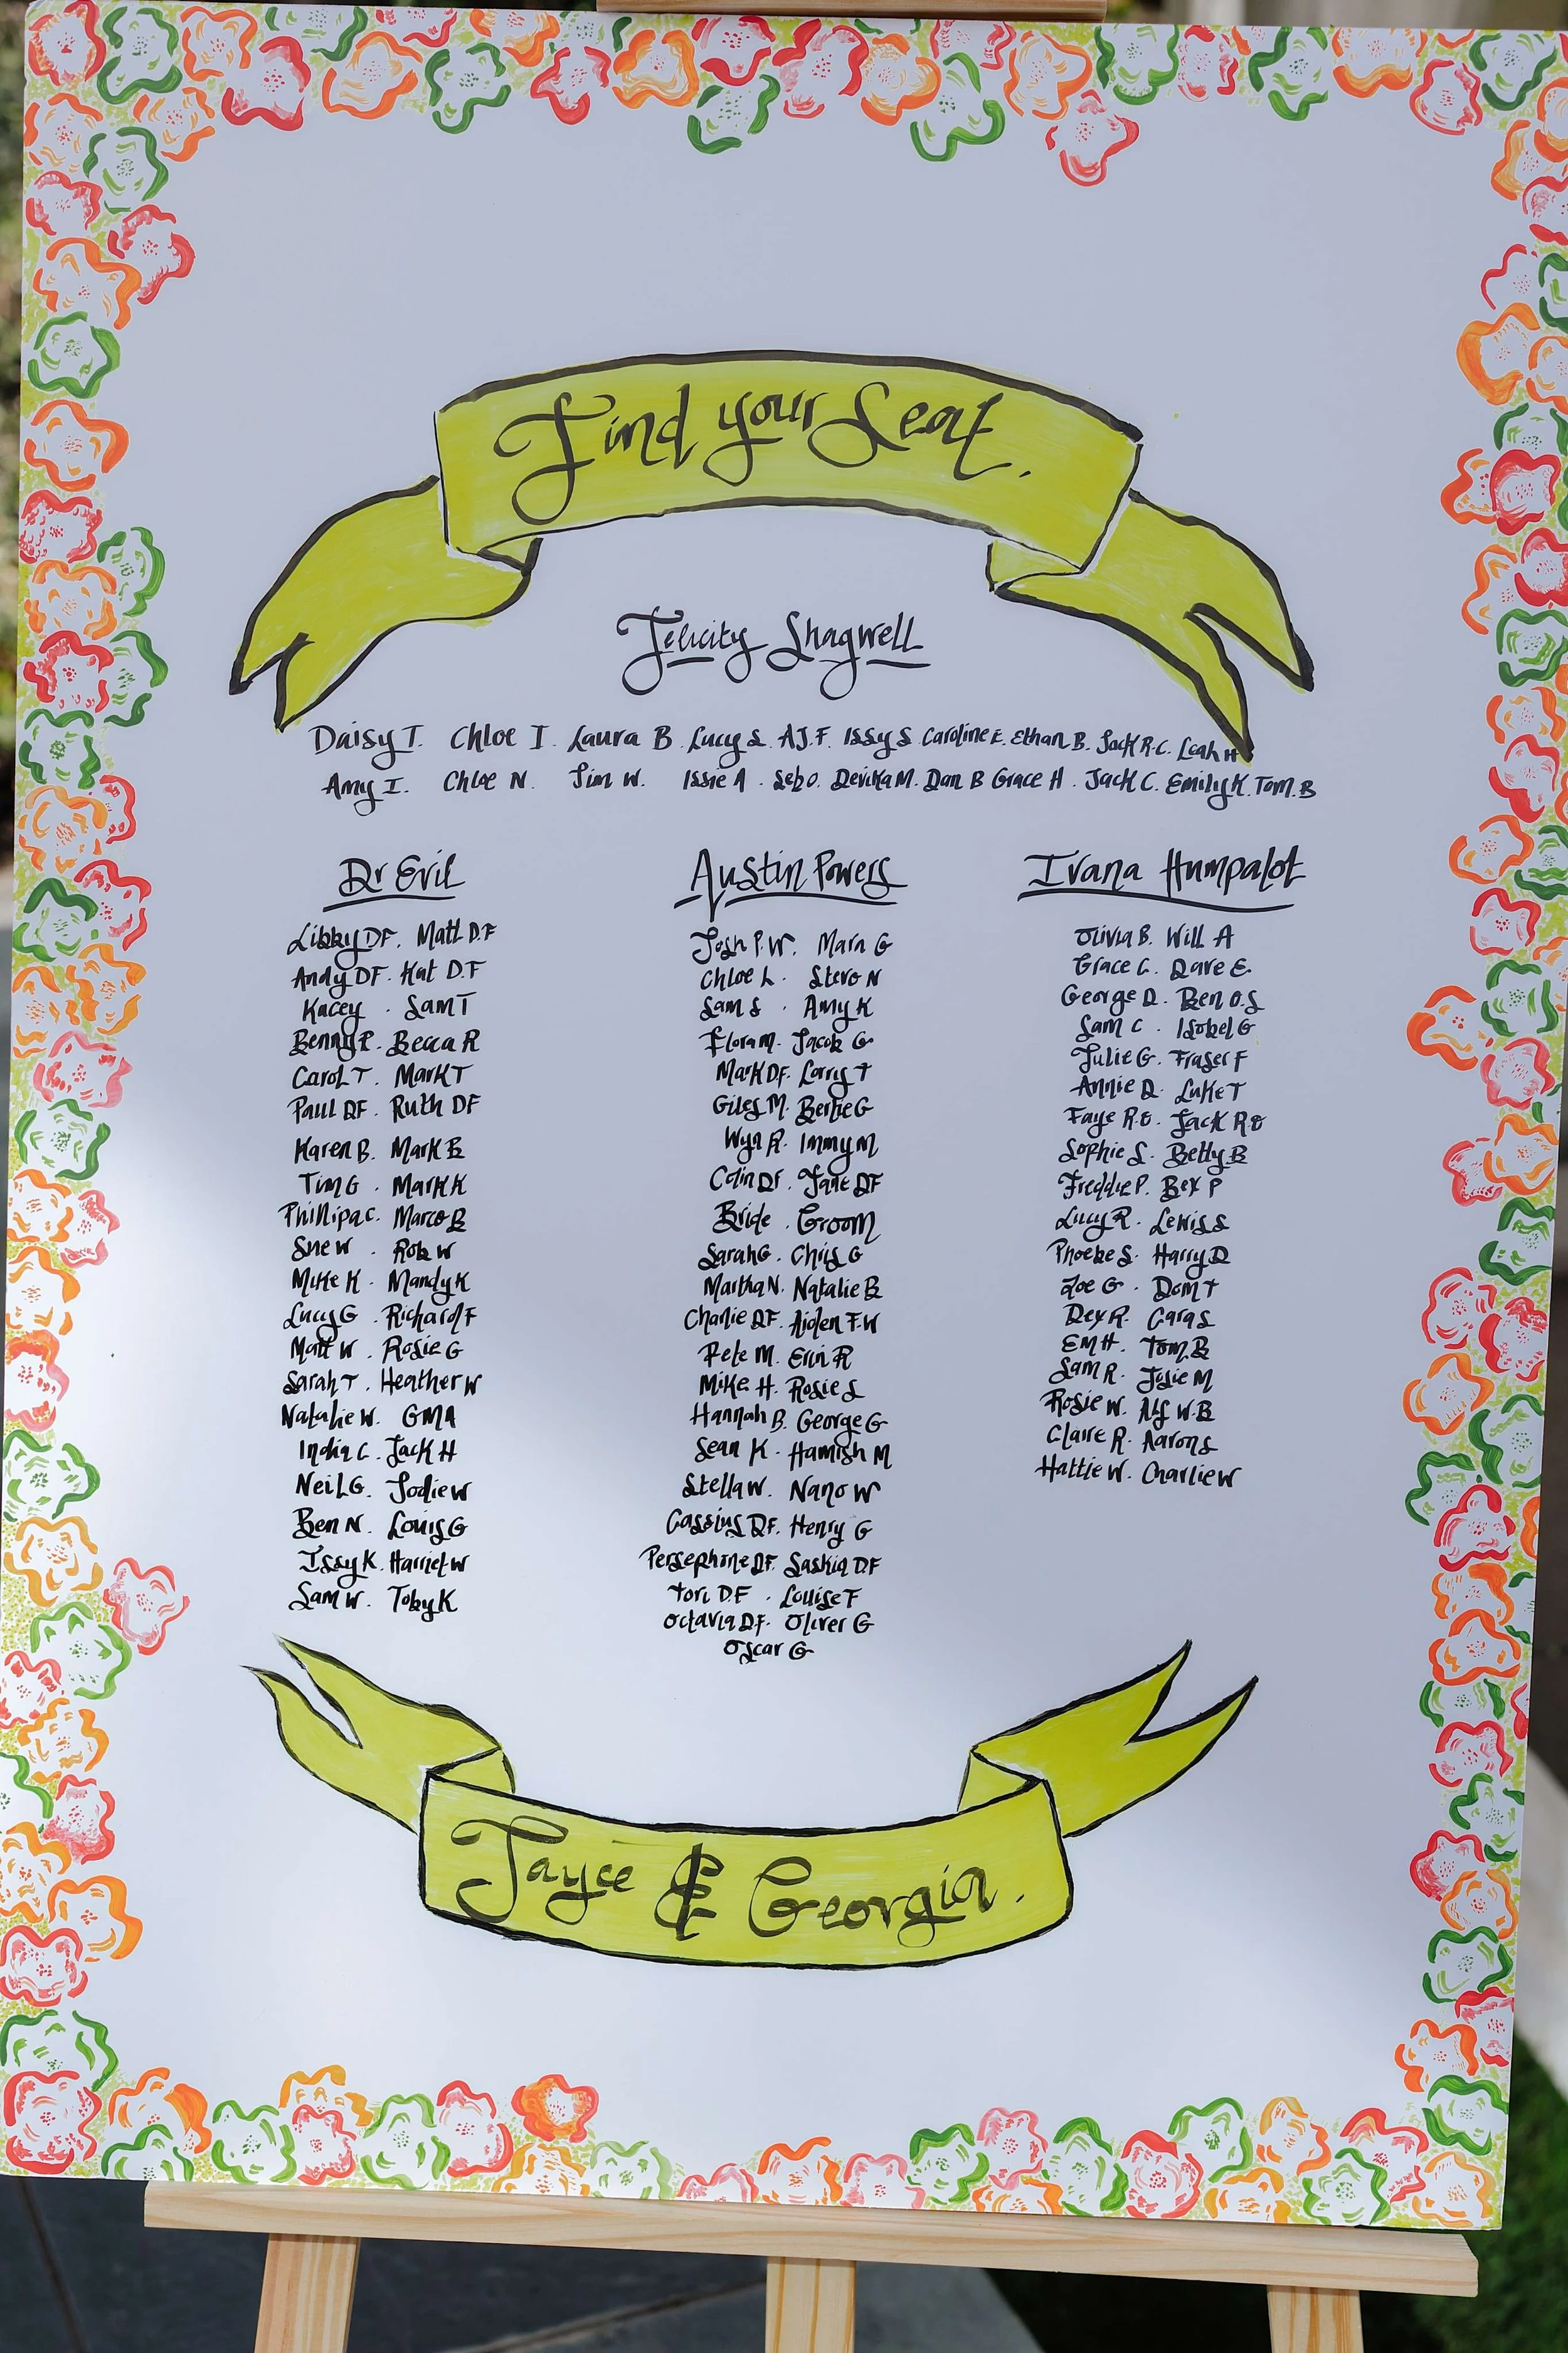 Find your Seat.
Felicity Shagwell
Daisy T. Chloe I. Laura B. Lucy S. AJ.F. Issy S Caroline E. Ethan B. Jack R.C. Leah H
Amy I. Chloe N. Jim W. Issie A. Seb O. Devika M. Dan B Grace H. Jack C. Emily K. Tom.B
Dr Evil Austin Powers Ivana Humpalot
Libby DF. Matt D.F
Andy DF. Kat D.F
Kacey . Sam T
Benny P. Becca R
Carol T. Mark T
Paul DF. Ruth DF
Karen B. Mark B
Tim G . Mark K
Phillipa C. Marco B
Sue W . Rob W
Mike K . Mandy K
Lucy G . Richard F
Matt W . Rosie G
Sarah T . Heather W
Natalie W. GMA
India C . Jack H
Neil G. Jodie W
Ben N. Louis G
Issy K. Harriet W
Sam W. Toby K
Josh P.W. Mara G
Chloe L . Stevo N
Sam S . Amy K
Flora M. Jacob G
Mark DF. Lorry T
Giles M. Bertie G
Wyn R. Immy M
Colin DF. Jane DF
Bride . Groom
Sarah G. Chris G
Martha N. Natalie B
Charlie DF. Aiden F.W
Pete M. Erin R
Mike H. Rosie S
Hannah B. George G
Sean K. Hamish M
Stella W. Nano W
Cassius DF. Henry G
Persephone DF. Saskia D.F
Tori D.F . Louise F
Octavia D.F. Oliver G
Oscar G
Olivia B. Will A
Grace C. Dave E.
George D. Ben O.S
Sam C . Isobel G
Julie G. Fraser F
Annie D. Luke T
Faye R.O. Jack R O
Sophie S. Betty B
Freddie P. Bex P
Lucy R. Lewis S
Phoebe S. Harry D
Zoe G . Dom T
Dex R. Cara S
Em H. Tom.B
Sam R. Josie M
Rosie W. Alf W.B
Claire R. Aaron S
Hattie W. Charlie W
Jayce & Georgia.